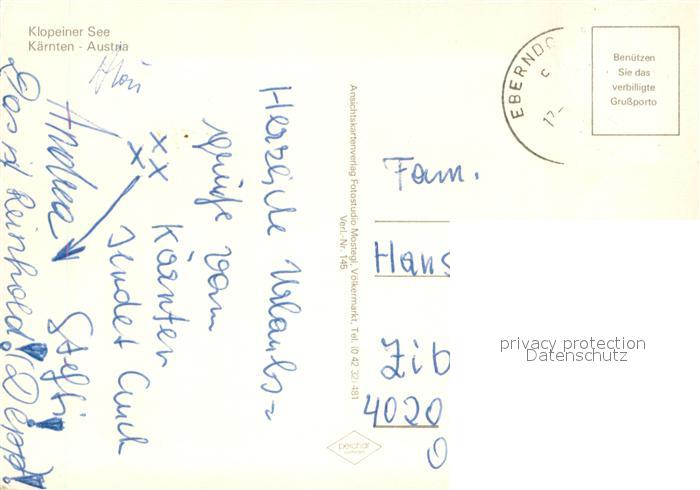 Klopeiner See
Kärnten - Austria
Herzliche Urlaubs=
grüße vom
Kärnten
sendet Euch
xx
x
Steffi
Andrea
Das ist Reinhold! (Depp!)
Ansichtskartenverlag Fotostudio Mostegl, Völkermarkt, Tel. (0 42 32) 481
Verl.-Nr. 145
peichär
EBERNDO
Benützen
Sie das
verbilligte
Grußporto
Fam.
Hans
Zib
4020
privacy protection
Datenschutz